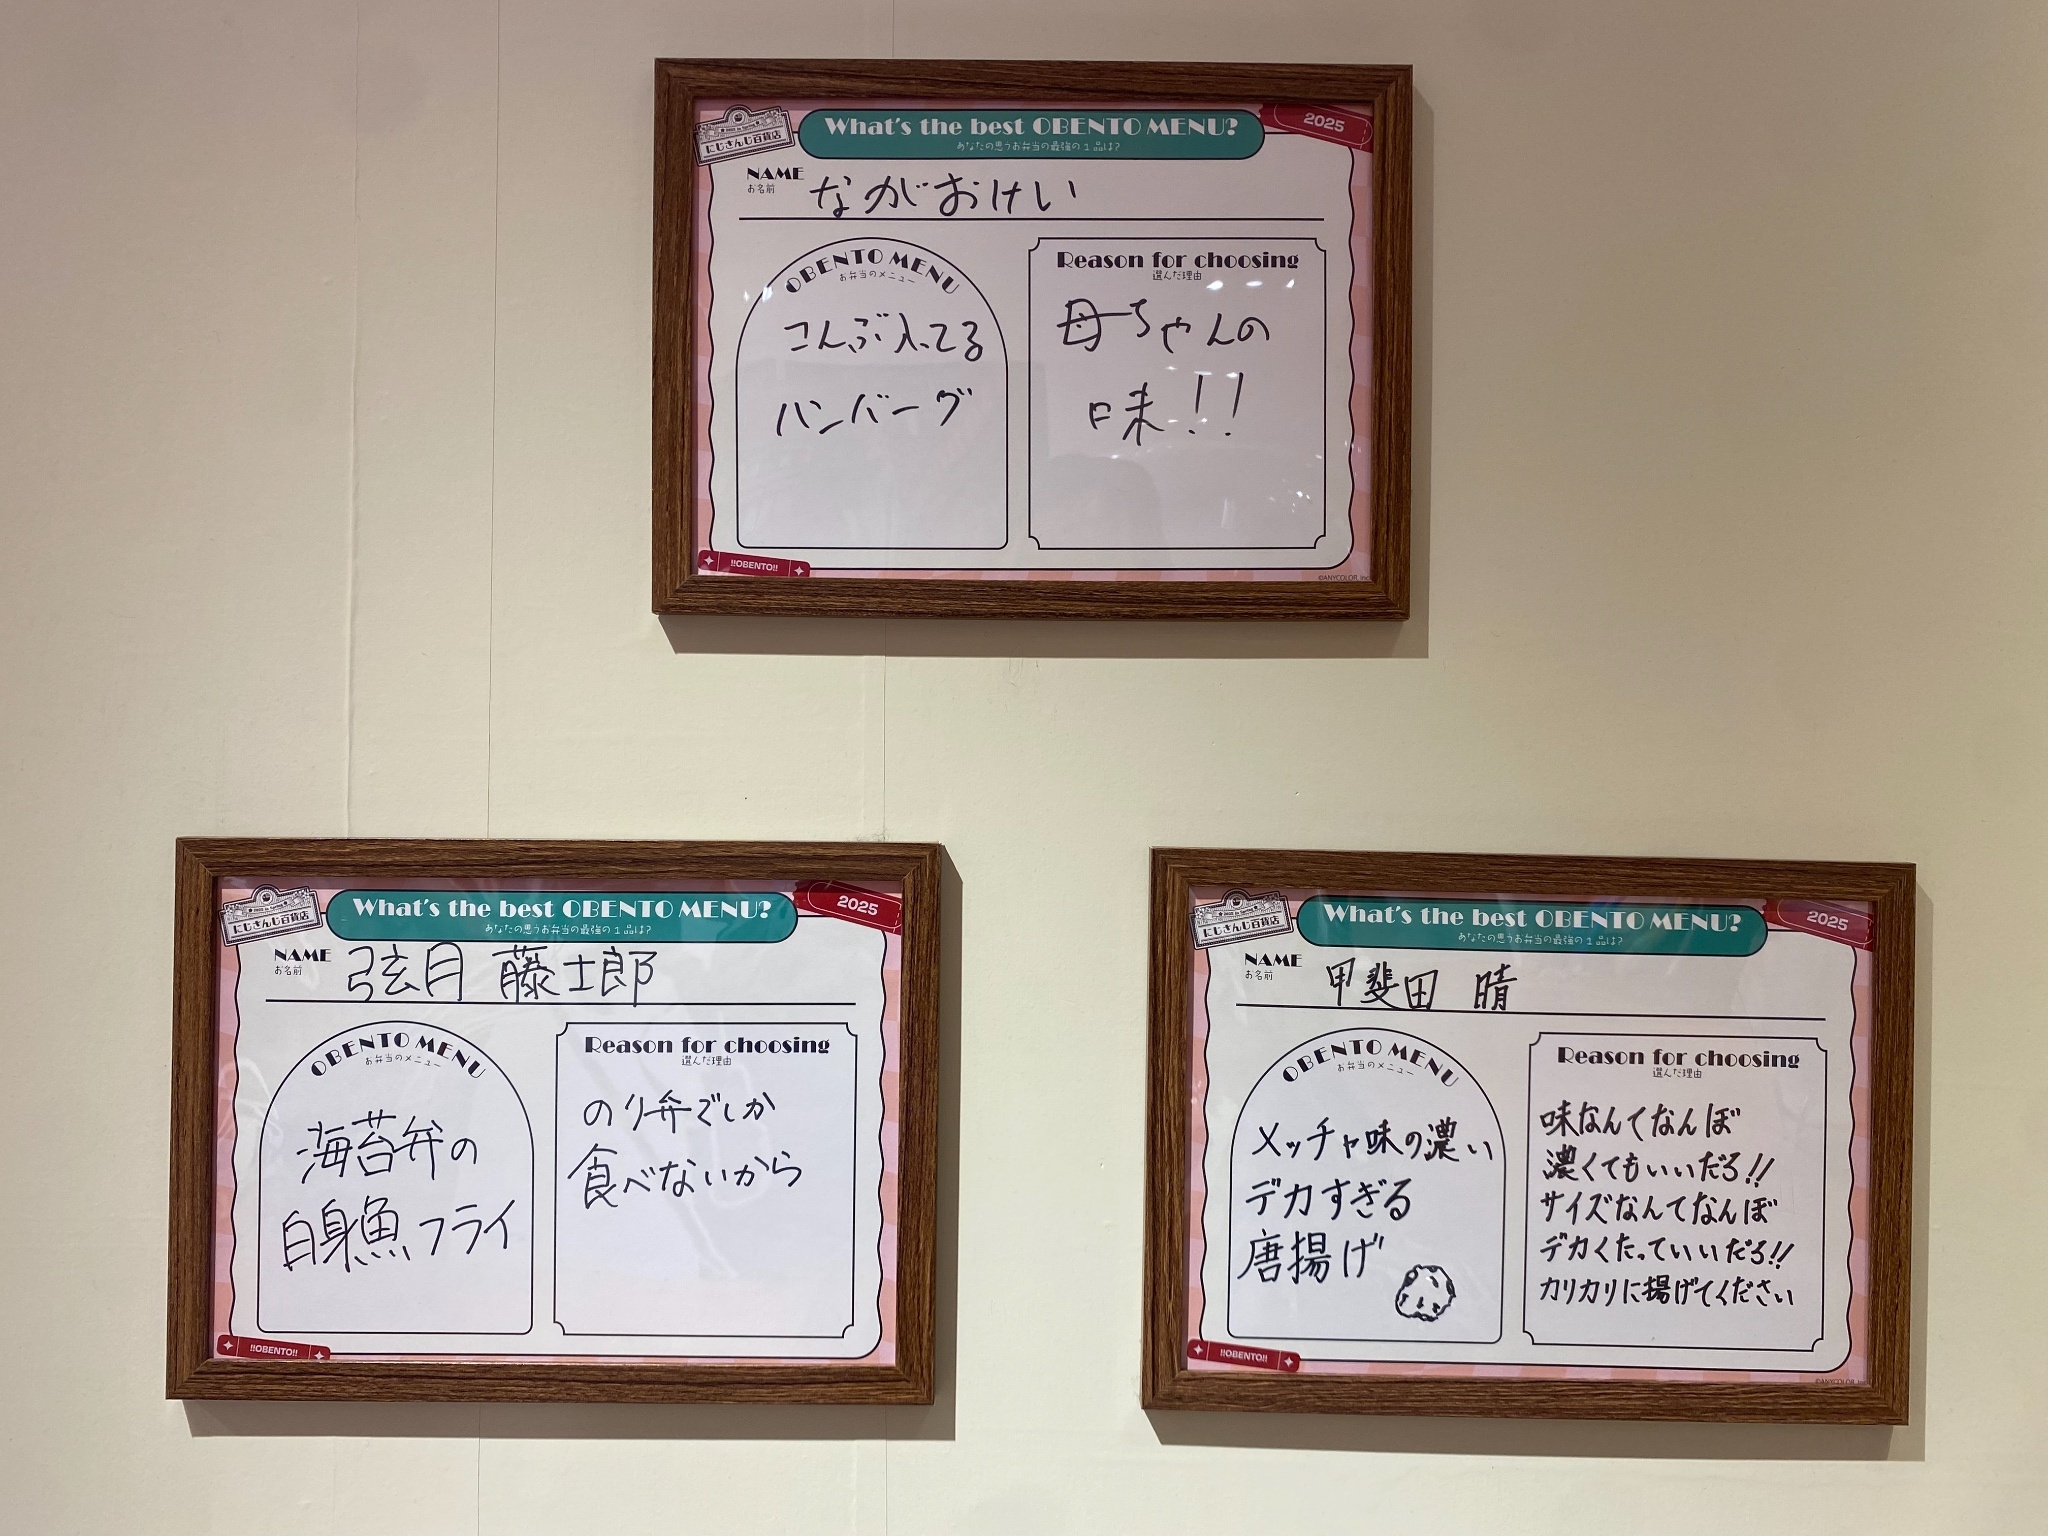 にじさんじ百貨店
What's the best OBENTO MENU?
あなたの思うお弁当の最強の1品は?
2025
NAME
お名前
ながおけい
OBENTO MENU
お弁当のメニュー
こんぶ入ってる
ハンバーグ
Reason for choosing
選んだ理由
母ちゃんの
味!!
!!OBENTO!!
©ANYCOLOR, Inc.
にじさんじ百貨店
What's the best OBENTO MENU?
あなたの思うお弁当の最強の1品は?
2025
NAME
お名前
弦月 藤士郎
OBENTO MENU
お弁当のメニュー
海苔弁の
白身魚フライ
Reason for choosing
選んだ理由
のり弁でしか
食べないから
!!OBENTO!!
にじさんじ百貨店
What's the best OBENTO MENU?
あなたの思うお弁当の最強の1品は?
2025
NAME
お名前
甲斐田 晴
OBENTO MENU
お弁当のメニュー
メッチャ味の濃い
デカすぎる
唐揚げ
Reason for choosing
選んだ理由
味なんてなんぼ
濃くてもいいだろ!!
サイズなんてなんぼ
デカくたっていいだろ!!
カリカリに揚げてください
!!OBENTO!!
©ANYCOLOR, Inc.